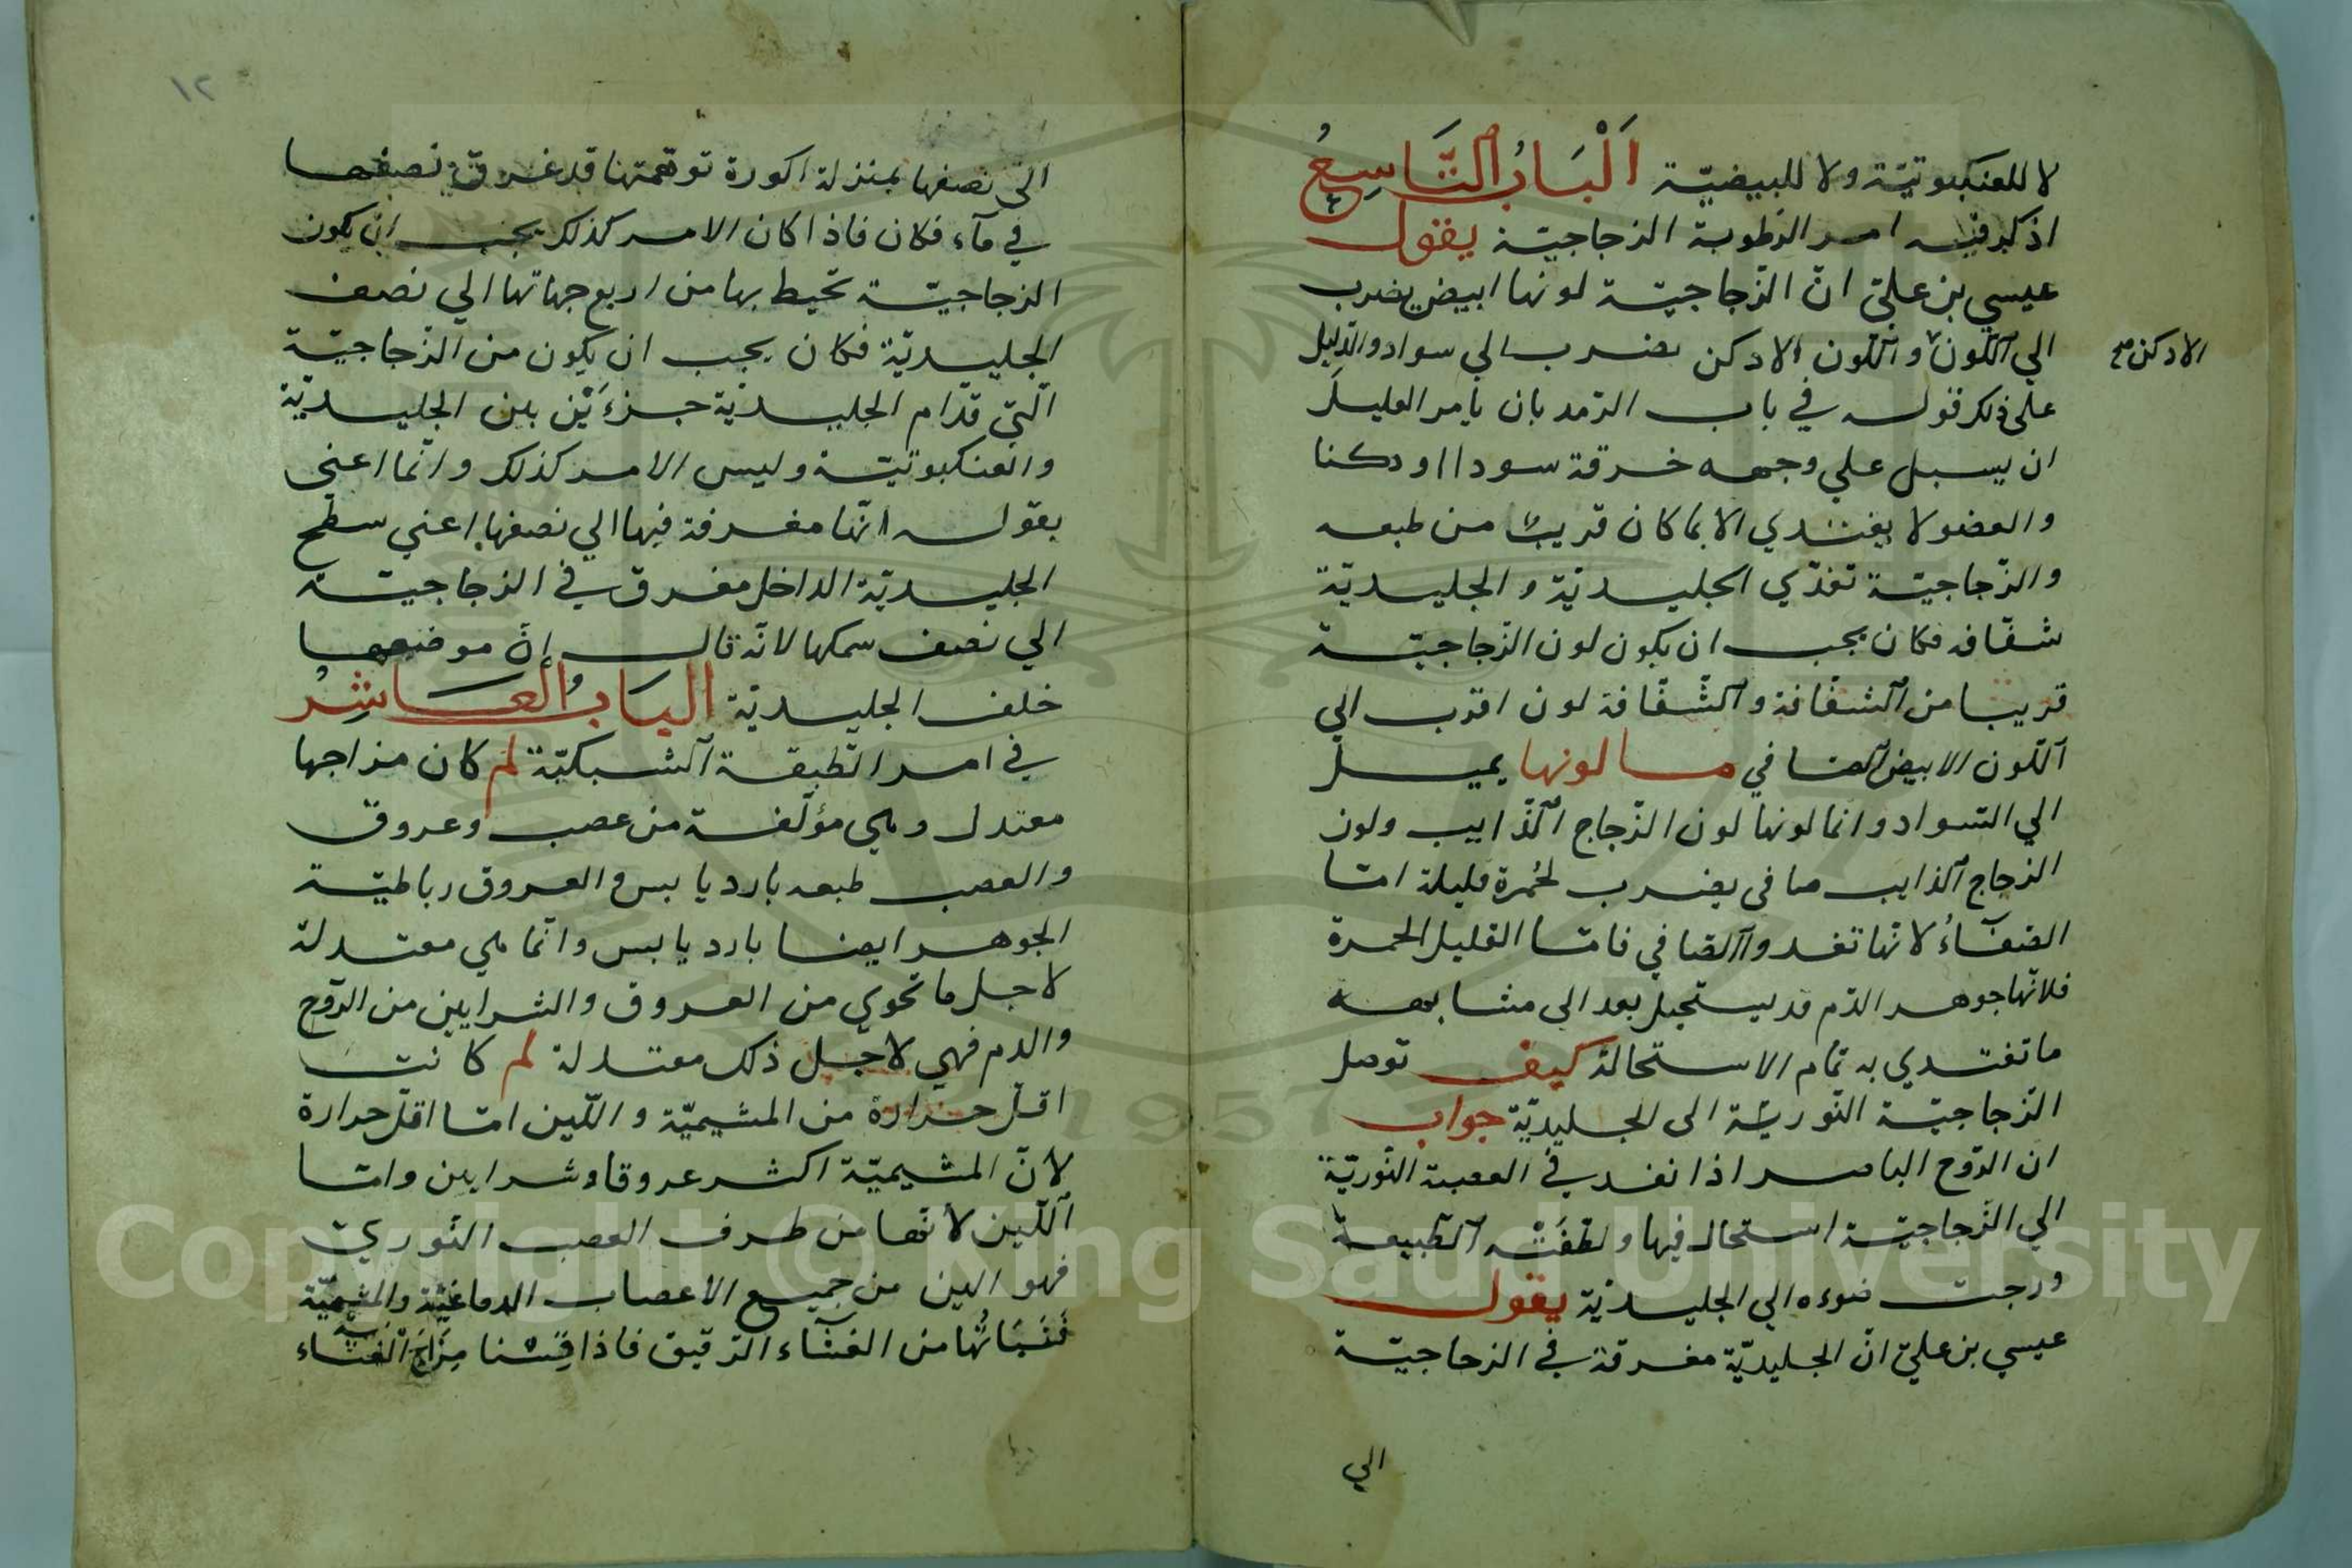 لا للعنكبوتيّة ولا للبيضيّة اَلْبَابُ التَّاسِعُ
اذكر فيه امر الرّطوبة الزجاجيّة يقول
عيسي بن عليّ انّ الزّجاجيّة لونها ابيض يضرب
الي اللّون واللّون الادكن يضرب الي سواد والدّليل
الادكن صح
على ذلك قوله في باب الرّمد بان يامر العليل
ان يسبل علي وجهه خرقة سودا او دكنا
والعضو لا يغتدي الا بما كان قريبًا من طبعه
والزّجاجيّة تغذّي الجليديّة والجليديّة
شفّافه فكان يجب ان يكون لون الزّجاجيّة
قريبا من الشفّافة والشّفّافة لون اقرب الي
اللّون الابيض الصافي ما لونها يميل
الي السّواد وانما لونها لون الزّجاج الذّايب ولون
الزجاج الذايب صافى يضرب لحُمرة قليلة امّا
الصّفآءُ لانّها تغدوا الصّافي فامّا القليل الحمرة
فلانّها جوهر الدّم قد يستحيل بعد الى مشابهه
ما تغتدي به تمام الاستحالة كيف توصل
الزّجاجيّة النّوريّة الى الجليديّة جواب
ان الرّوح الباصر اذا نفد في العصبة النّوريّة
الي الزّجاجيّة استحال فيها ولطّفَتْه الطّبيعة
ورجت ضوءه الي الجليديّة يقول
عيسي بن عليّ انّ الجليديّة مغرقة في الزجاجيّة
الي
١٢
الى نصفها بمنزلة اكورة توهّمتها قد غرق نصفها
في مآء فكان فاذا كان الامر كذلك يجب ان يكون
الزجاجيّة تحيط بها من اربع جهاتها الي نصف
الجليديّة فكان يجب ان يكون من الزّجاجيّة
الّتي قدّام الجليديّة جزءَيْن بين الجليديّة
والعنكبوتيّة وليس الامر كذلك وانّما اعني
بقوله انّها مغرقة فيها الي نصفها اعني سطح
الجليديّة الداخل مغرق في الزجاجيّة
الي نصف سمكها لانّه قال انّ موضعها
خلف الجليديّة البَابُ العَاشِرُ
في امر الطّبقة الشبكيّة لم كان مزاجها
معتدل وهي مؤلّفة من عصب وعروق
والعصب طبعه بارد يابس والعروق رباطيّة
الجوهر ايضا بارد يابس وانّما هي معتدلة
لاجل ما تحوي من العروق والشرايين من الرّوح
والدم فهي لاجل ذلك معتدلة لم كانت
اقلّ حرارة من المشيميّة واللّين امّا اقلّ حرارة
لانّ المشيميّة اكثر عروقا وشرايين وامّا
اللّين لانّها من طرف العصب النّوريّ
فهو الين من جميع الاعصاب الدماغيّة والمشيميّة
فَنَبَاتُها من الغشَاء الرّقيق فاذا قِسْنا مِزَاجَ الغشَاء
Copyright © King Saud University
1957